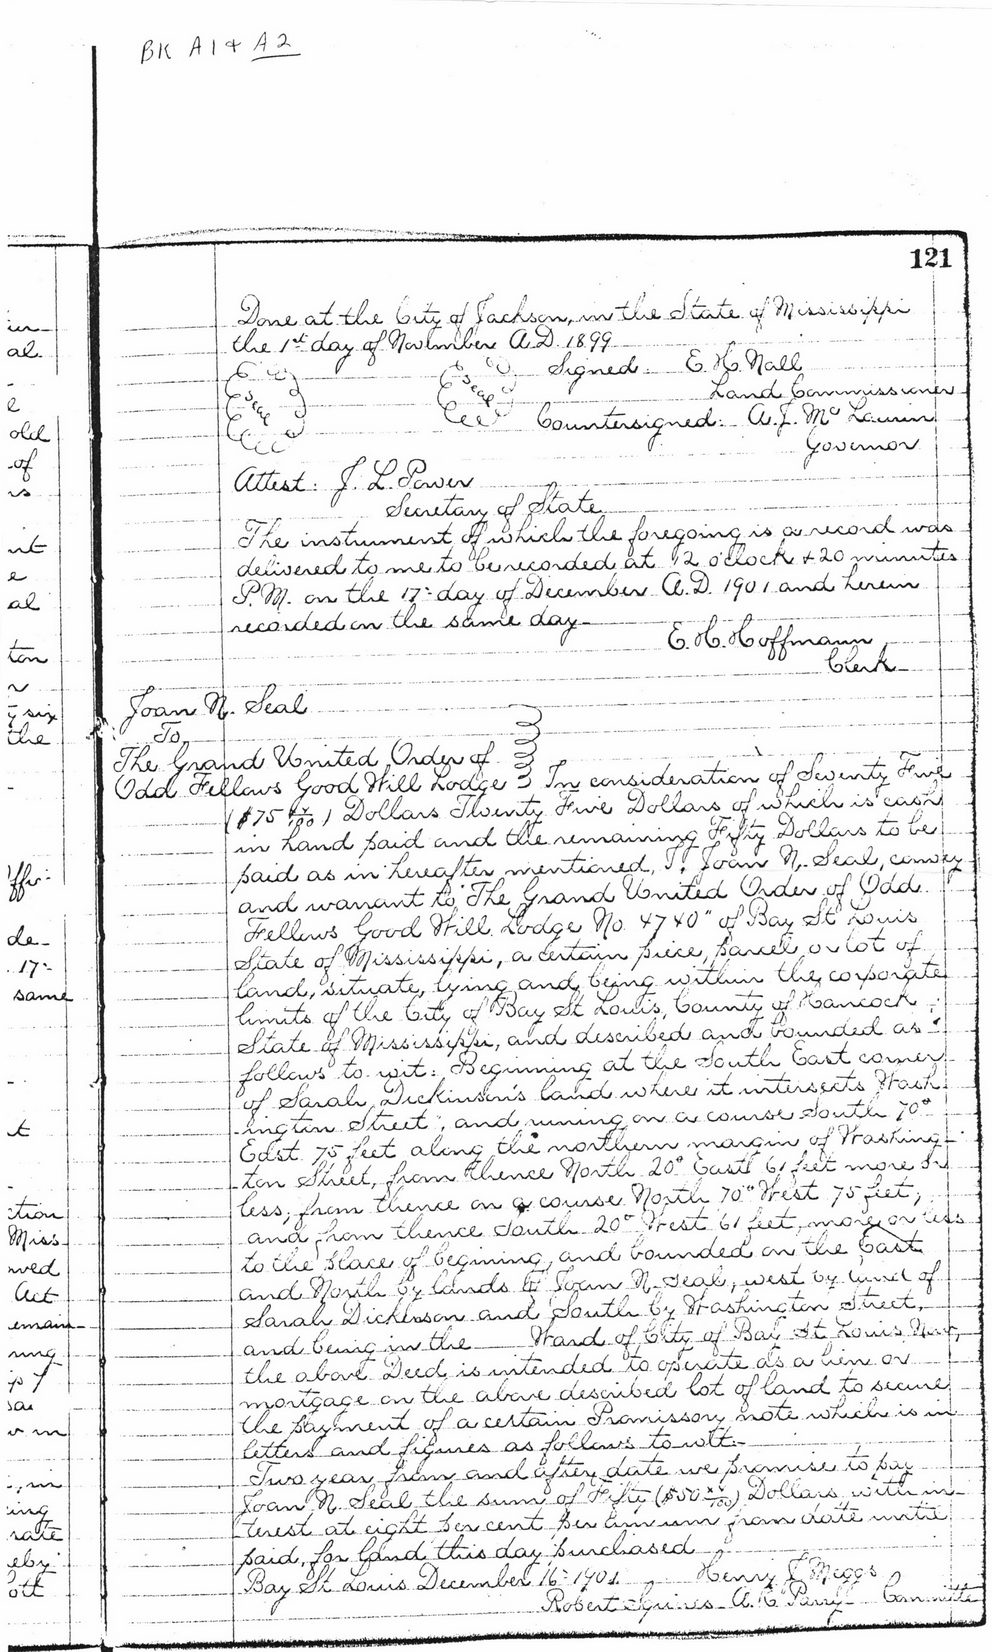 BK A1 & A2
121
Done at the City of Jackson, in the State of Mississippi
the 1st day of November A.D. 1899
Seal Seal Signed. E. H. Nall
Land Commissioner
Countersigned: A. J. McLaurin
Governor
Attest: J. L. Power
Secretary of State
The instrument of which the foregoing is a record was
delivered to me to be recorded at 12 o'clock & 20 minutes
P.M. on the 17- day of December A.D. 1901 and herein
recorded on the same day-
E. H. Hoffmann
Clerk
Joan N. Seal
To
The Grand United Order of
Odd Fellows Good Will Lodge In consideration of Seventy Five
($75 xx/100) Dollars Twenty Five Dollars of which is cash
in hand paid and the remaining Fifty Dollars to be
paid as in hereafter mentioned, I, Joan N. Seal, convey
and warrant to "The Grand United Order of Odd
Fellows Good Will Lodge No. 4740" of Bay St Louis
State of Mississippi, a certain piece, parcel, or lot of
land, situate, lying and being within the corporate
limits of the City of Bay St Louis, County of Hancock
State of Mississippi, and described and bounded as
follows to wit: Beginning at the South East corner
of Sarah Dickinson's land where it intersects Wash-
ington Street, and runing on a course South 70°
East 75 feet along the northern margin of Washing-
ton Street, from thence North 20° East 61 feet more or
less; from thence on a course North 70° West 75 feet;
and from thence South 20° West 61 feet, more or less
to the place of begining, and bounded on the East
and North by lands of Joan N. Seal, west by land of
Sarah Dickinson and South by Washington Street,
and being in the Ward of City of Bay St. Louis Now,
the above Deed is intended to operate as a lien or
mortgage on the above described lot of land to secure
the payment of a certain Promissory note which is in
letters and figures as follows to wit:-
Two year from and after date we promise to pay
Joan N. Seal the sum of Fifty ($50 xx/100) Dollars with in-
terest at eight per cent per annum from date until
paid, for land this day purchased
Bay St Louis December 16- 1901. Henry J. Meggs
Robert A. R. Parry Committe